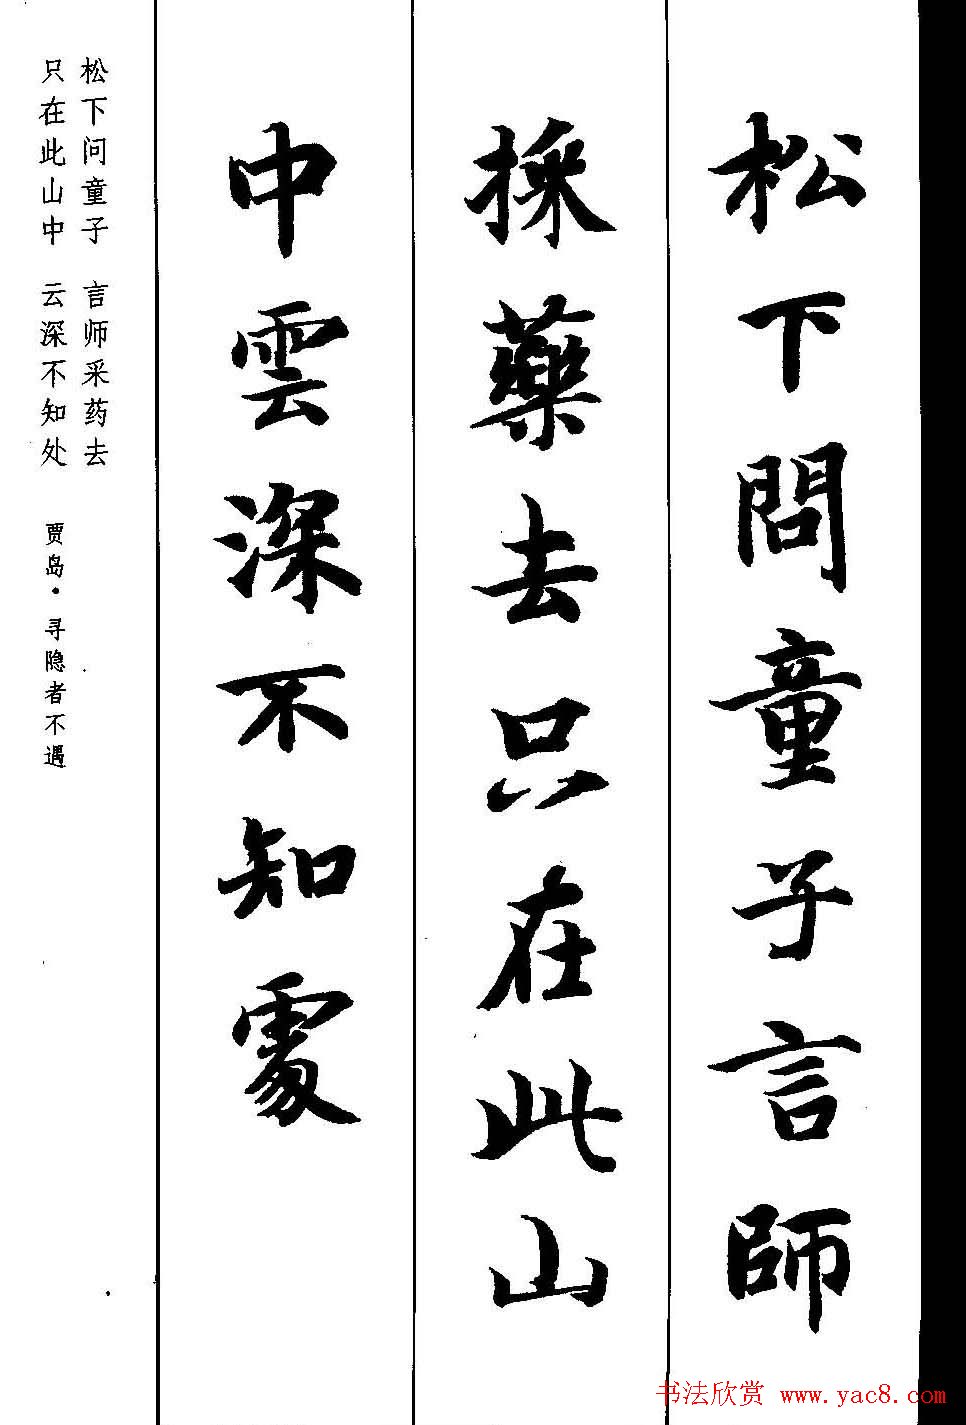 松下問童子言師
採藥去只在此山
中雲深不知處
松下问童子 言师采药去
只在此山中 云深不知处 贾岛·寻隐者不遇
书法欣赏 www.yac8.com